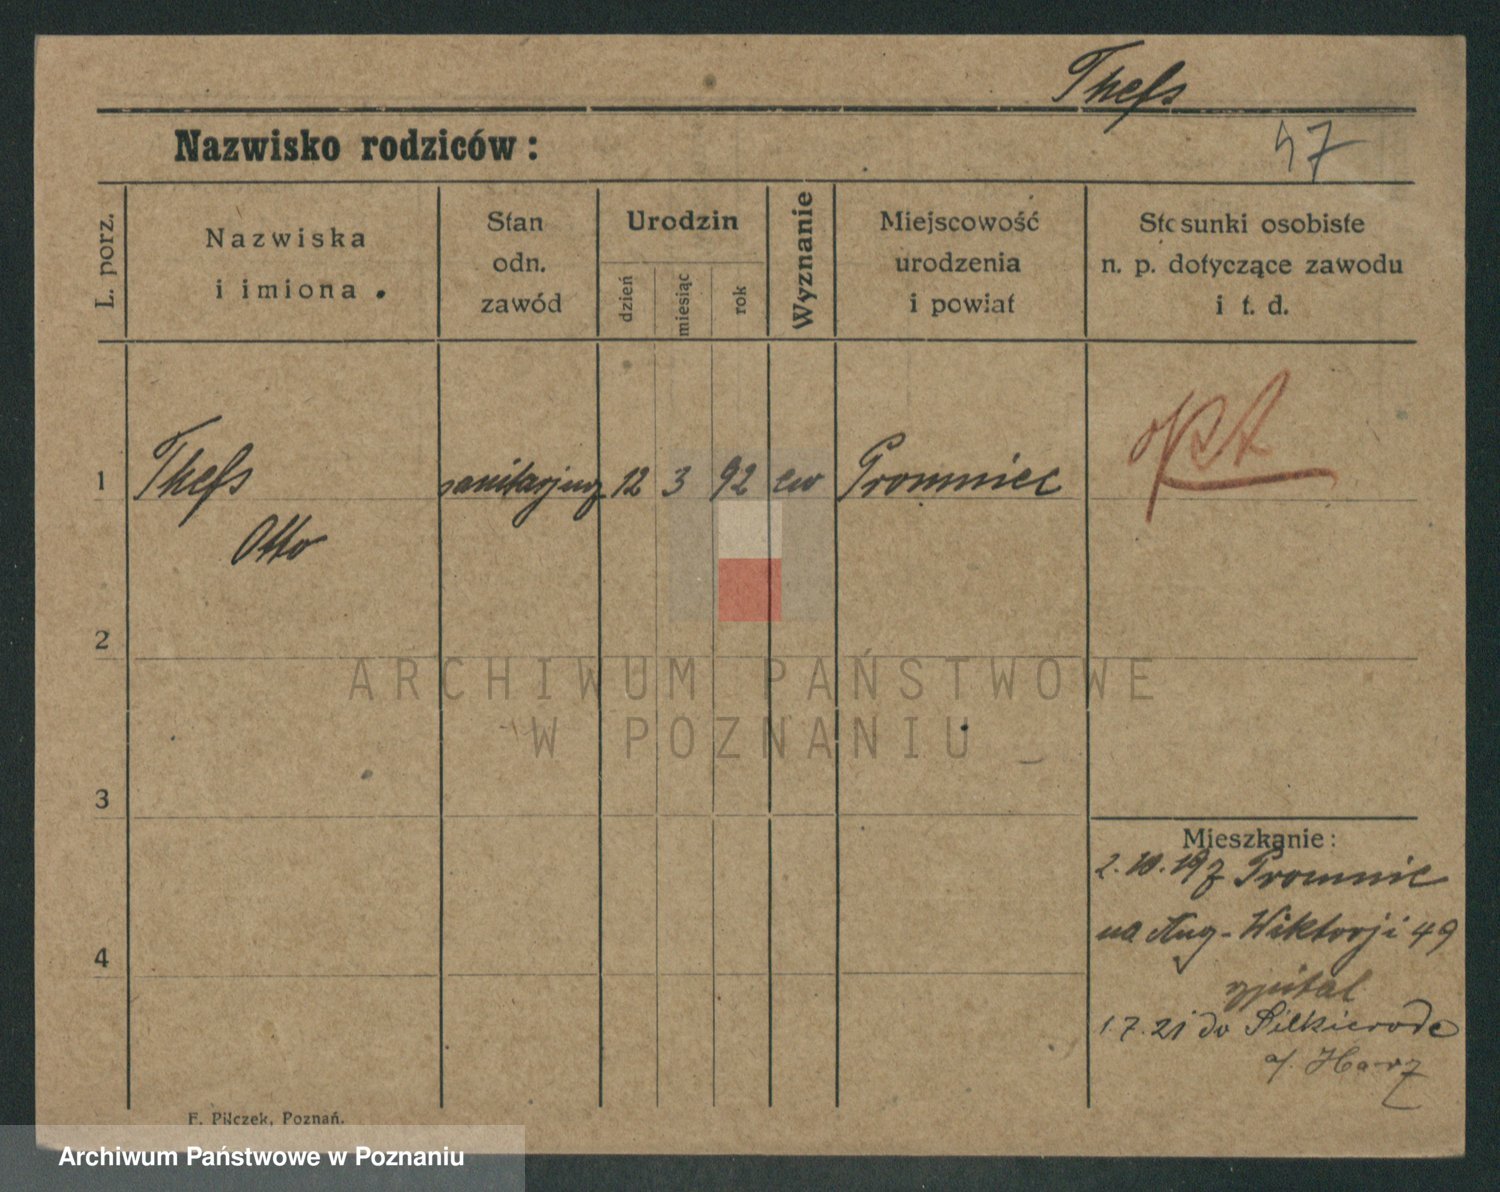 Thefs
47
Nazwisko rodziców:
L. porz.
Nazwiska
i imiona.
Stan
odn.
zawód
Urodzin
dzień
miesiąc
rok
Wyznanie
Miejscowość
urodzenia
i powiat
Stosunki osobiste
n. p. dotyczące zawodu
i t. d.
1 Thefs 12 3 92 ew Promniec
Otto
opt
2
3
4
Mieszkanie:
2. 10. 19 z Promnic
na Aug-Wiktorji 49
szpital
1. 7. 21 do
a/. Harz
F. Pilczek, Poznań.
ARCHIWUM PAŃSTWOWE
W POZNANIU
Archiwum Państwowe w Poznaniu